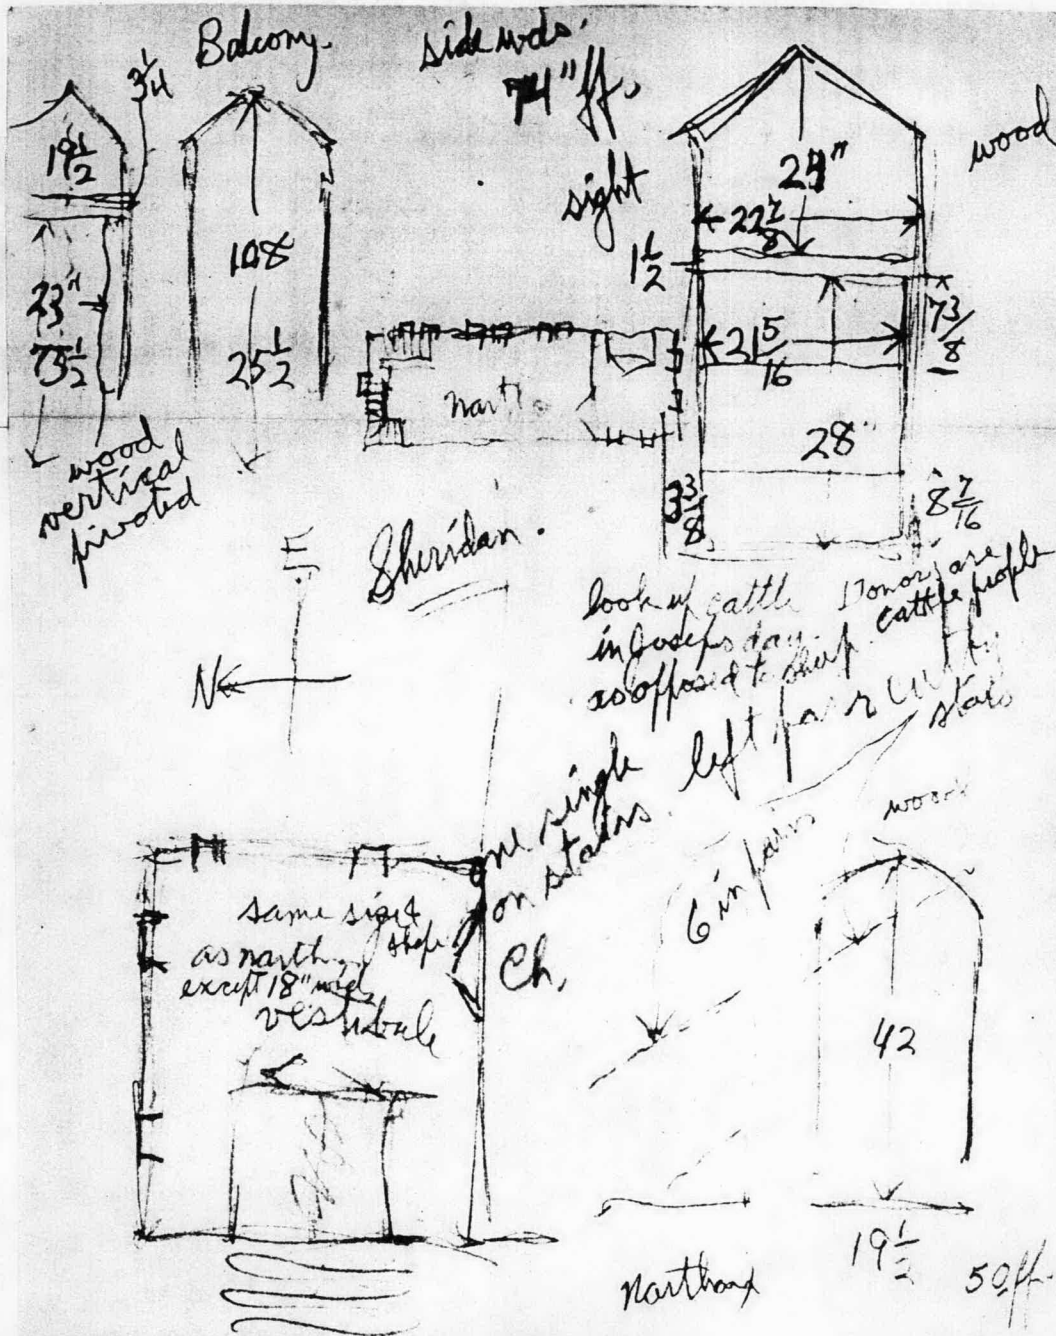 Balcony.
side wds.
74" ff.
3 1/4
19 1/2
23"
75 1/2
wood
vertical
pivoted
108
25 1/2
sight
wood
29"
22 7/8
1 1/2
21 5/16
7 3/8
28"
3 3/8
8 7/16
Narth
Sheridan.
N
look up cattle
in Josephs day.
as opposed to sheep
Donors are
cattle people
one single
on stairs.
left pair
stairs
6 in pairs
wood
same size &
shape
as narth.
except 18" wide
vestibule
Ch.
42
19 1/2
Narthax
50 ff.